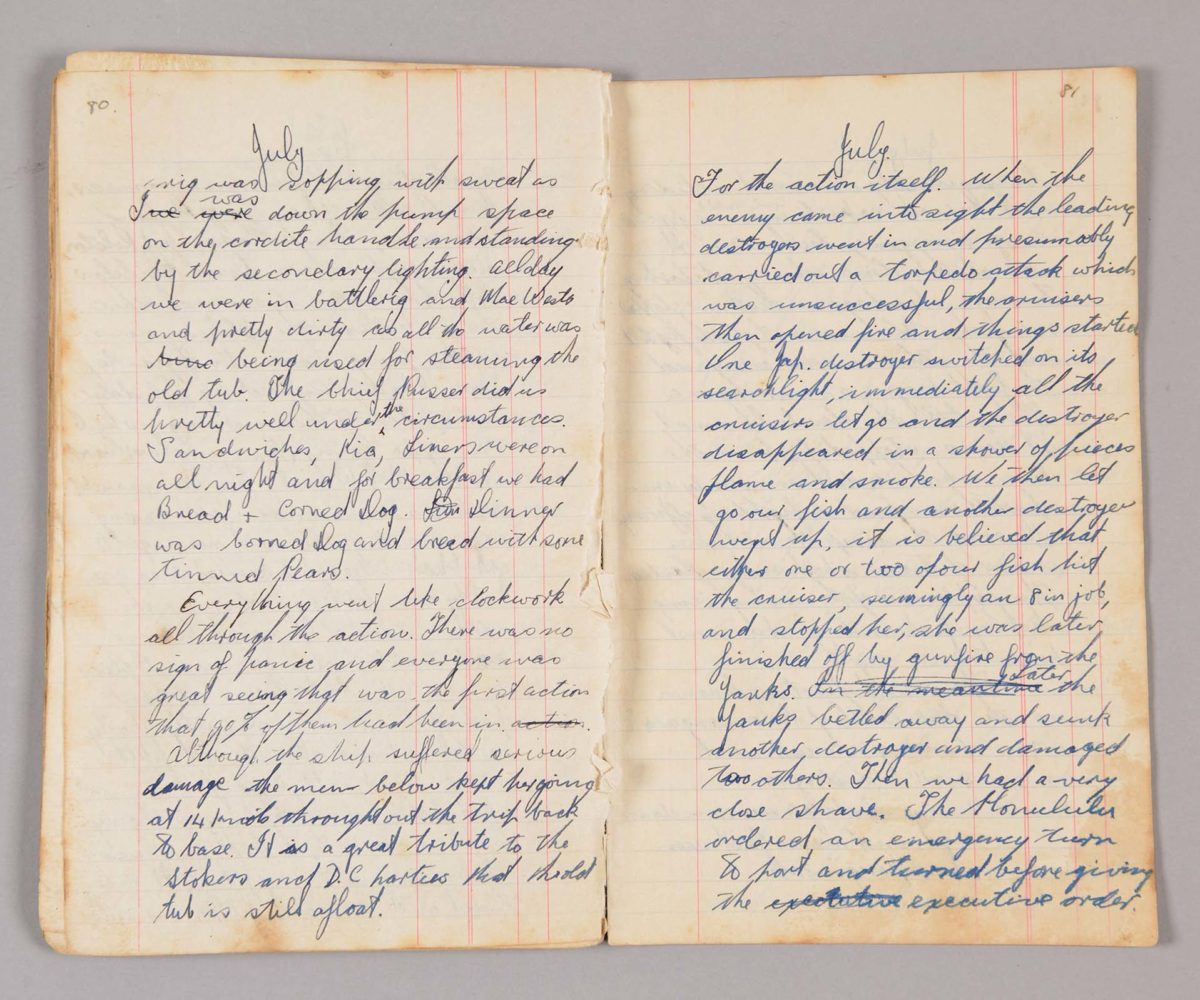 80.
July
rig was sopping with sweat as
I've were was down the pump space
on the cordite handle and standing
by the secondary lighting. All day
we were in battlerig and Mae Wests
and pretty dirty as all the water was
being used for steaming the
old tub. The Chief Pusser did us
pretty well under the circumstances.
Sandwiches, Kia, Limers were on
all night and for breakfast we had
Bread + Corned Dog. Dinner
was Corned Dog and bread with some
tinned Pears.
Everything went like clockwork
all through the action. There was no
sign of panic and everyone was
great seeing that was the first action
that 90% of them had been in action.
Although the ship suffered serious
damage the men below kept her going
at 14 knots throughtout the trip back
to base. It is a great tribute to the
Stokers and D.C parties that the old
tub is still afloat.
81
July.
For the action itself. When the
enemy came into sight the leading
destroyers went in and presumably
carried out a torpedo attack which
was unsuccessful, the cruisers
then opened fire and things started
One Jap. destroyer switched on its
searchlight, immediately all the
cruisers let go and the destroyer
disappeared in a shower of pieces
flame and smoke. We then let
go our fish and another destroyer
went up, it is believed that
either one or two of our fish hit
the cruiser, seemingly an 8 in job,
and stopped her, she was later
finished off by gunfire from the
Yanks. In the meantime Later the
Yanks betled away and sunk
another destroyer and damaged
two others. Then we had a very
close shave. The Honululu
ordered an emergency turn
to port and turned before giving
the executive executive order.